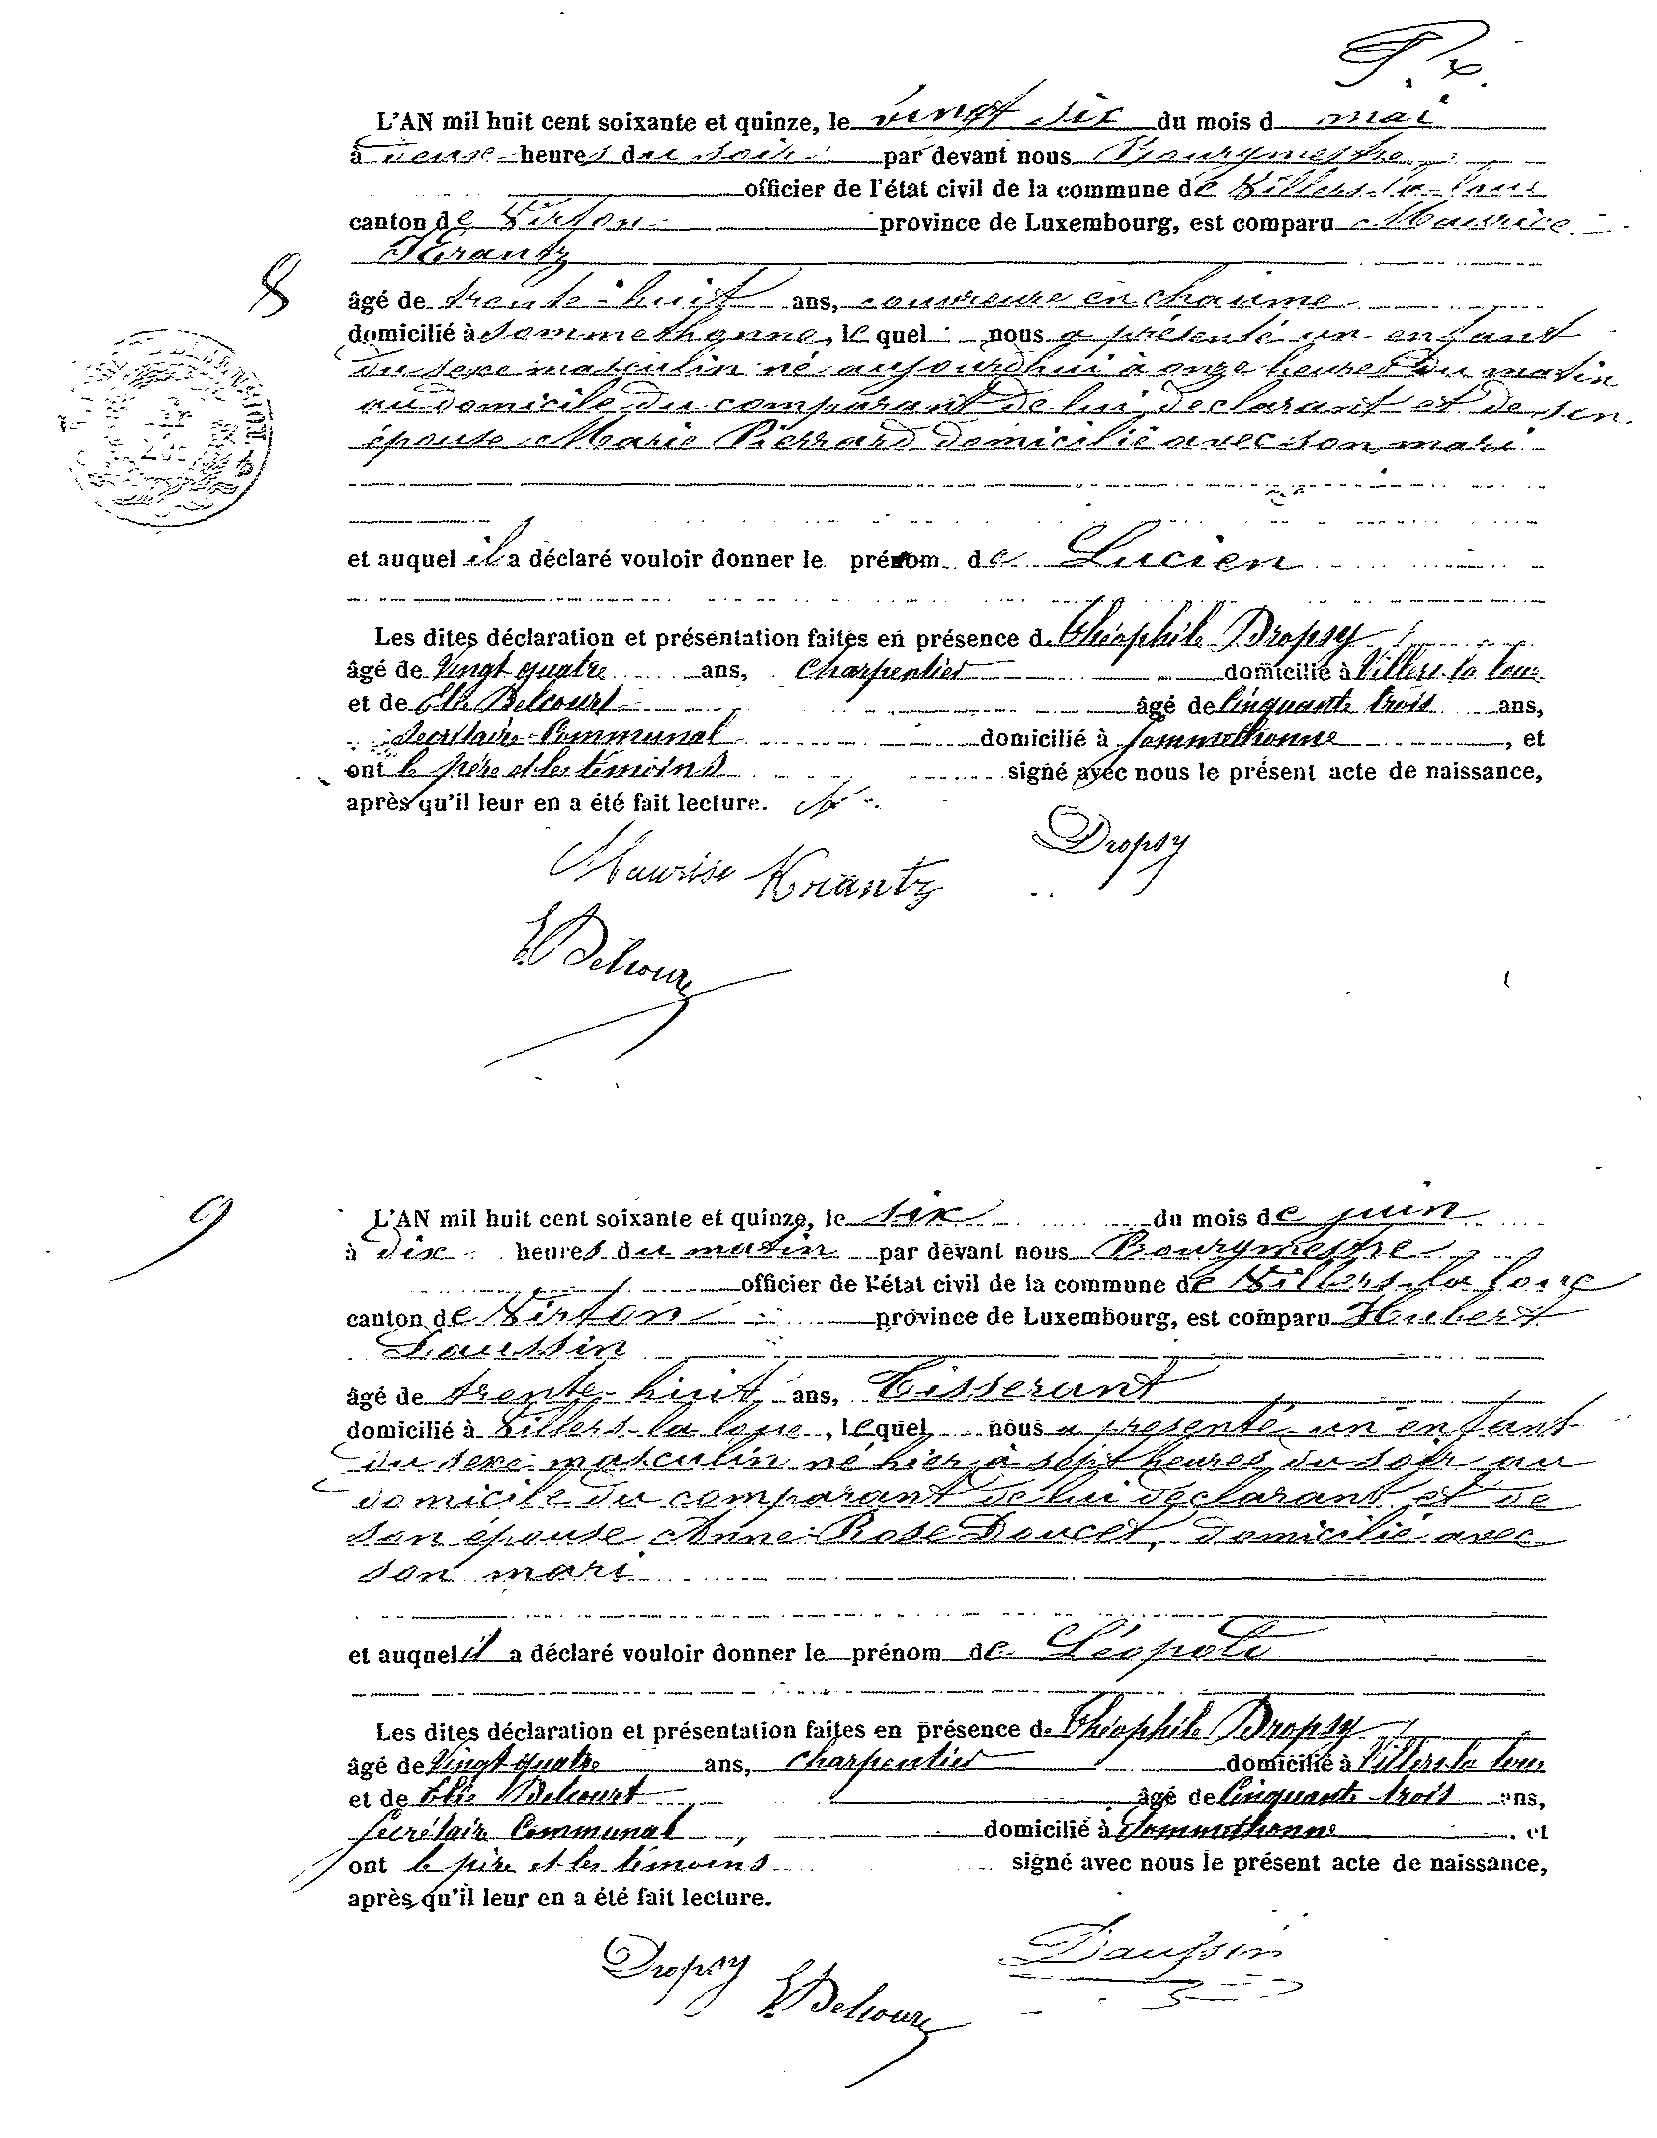 P. x.
L'AN mil huit cent soixante et quinze, le vingt six du mois d mai
à deuse heures du soir par devant nous Bourgmestre
officier de l'état civil de la commune de Villers-la-loue
canton de Virton province de Luxembourg, est comparu Maurice
Krantz
8
âgé de trente-huit ans, couvreure en chaume
domicilié à Sommethonne, le quel nous a présenté un enfant
du sexe masculin né aujourdhui à onze heures du matin
au domicile du comparant de lui déclarant et de son
épouse Marie Pierrard domicilié avec son mari
et auquel il a déclaré vouloir donner le prénom de Lucien
Les dites déclaration et présentation faites en présence de Théophile Dropsy
âgé de Vingt quatre ans, Charpentier domicilié à Villers-la-loue
et de Elie Delcourt âgé de Cinquante trois ans,
Secrétaire Communal domicilié à Sommethonne, et
ont le père et les témoins signé avec nous le présent acte de naissance,
après qu'il leur en a été fait lecture.
Dropsy
Maurise Krantz
E. Delcourt
9
L'AN mil huit cent soixante et quinze, le six du mois de juin
à dix heures du matin par devant nous Bourgmestre
officier de l'état civil de la commune de Villers-la loue
canton de Virton province de Luxembourg, est comparu Hubert
Daussin
âgé de trente-huit ans, Tisserant
domicilié à Villers-la loue, lequel nous a présenté un enfant
du sexe masculin né hier à sept heures du soir au
domicile du comparant de lui déclarant et de
son épouse Anne-Rose Doucet, domicilié avec
son mari
et auquel il a déclaré vouloir donner le prénom de Léopold
Les dites déclaration et présentation faites en présence de Théophile Dropsy
âgé de Vingt quatre ans, Charpentier domicilié à Villers-la loue
et de Elie Delcourt âgé de Cinquante trois ans,
Secrétaire Communal, domicilié à Sommethonne, et
ont le père et les témoins signé avec nous le présent acte de naissance,
après qu'il leur en a été fait lecture.
Daussin
Dropsy
E. Delcourt